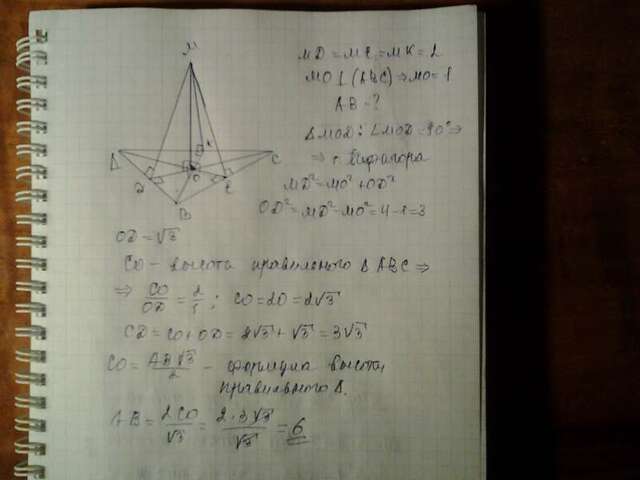 M
MD = ME = MK = 2
MO ⊥ (ABC) ⇒ MO = 1
AB = ?
Δ MOD: ∠MOD = 90° ⇒
⇒ т. Пифагора
MD² = MO² + OD²
OD² = MD² - MO² = 4 - 1 = 3
A
K
C
D
O
E
B
OD = √3
CO - высота правильного Δ ABC ⇒
⇒ CO/OD = 2/1; CO = 2O = 2√3
CD = CO + OD = 2√3 + √3 = 3√3
CO = AB√3/2 - формула высоты
правильного Δ.
AB = 2CO/√3 = 2·3√3/√3 = 6